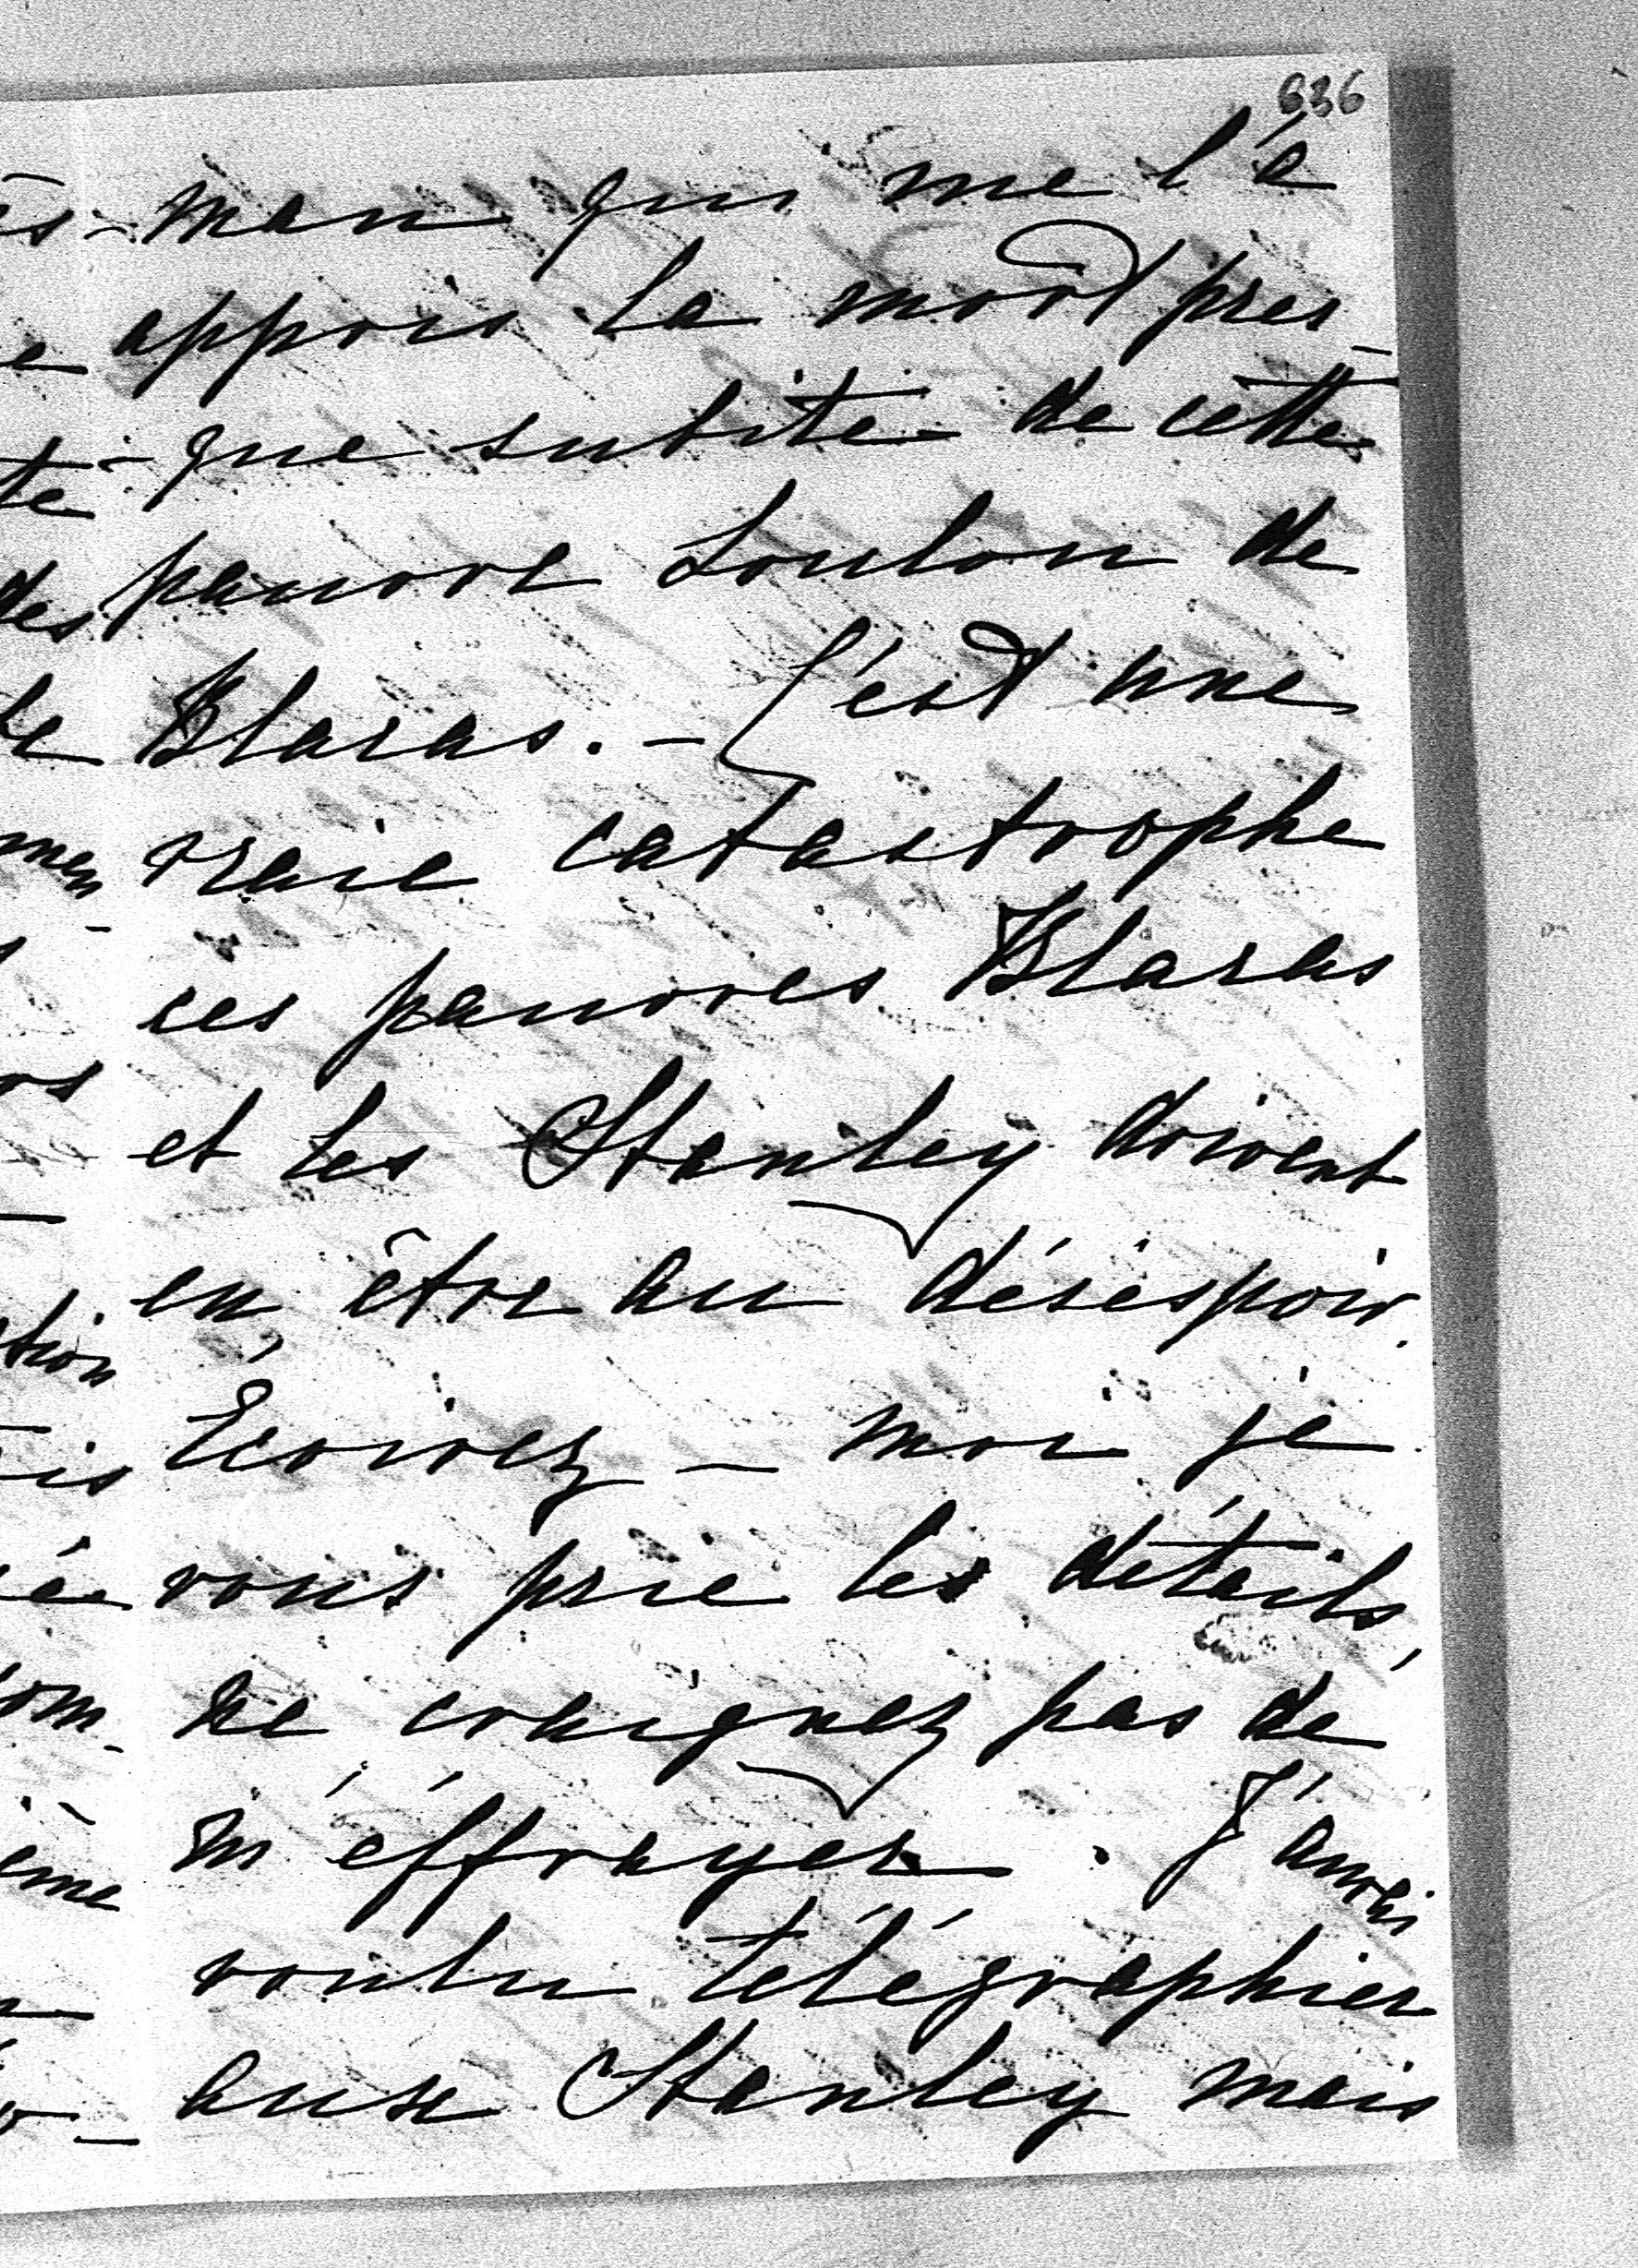 636
man qui me l'a
appris la mort pres-
que subite de cette
pauvre Loulou de
Blaras. - C'est une
vraie catastrophe
ces pauvres Blaras
et les Stanley doivent
en être au déséspoir.
Ecrivez - moi je
vous prie les détails,
ne craignez pas de
m'éffrayer. J'aurais
voulu télégraphier
aux Stanley mais